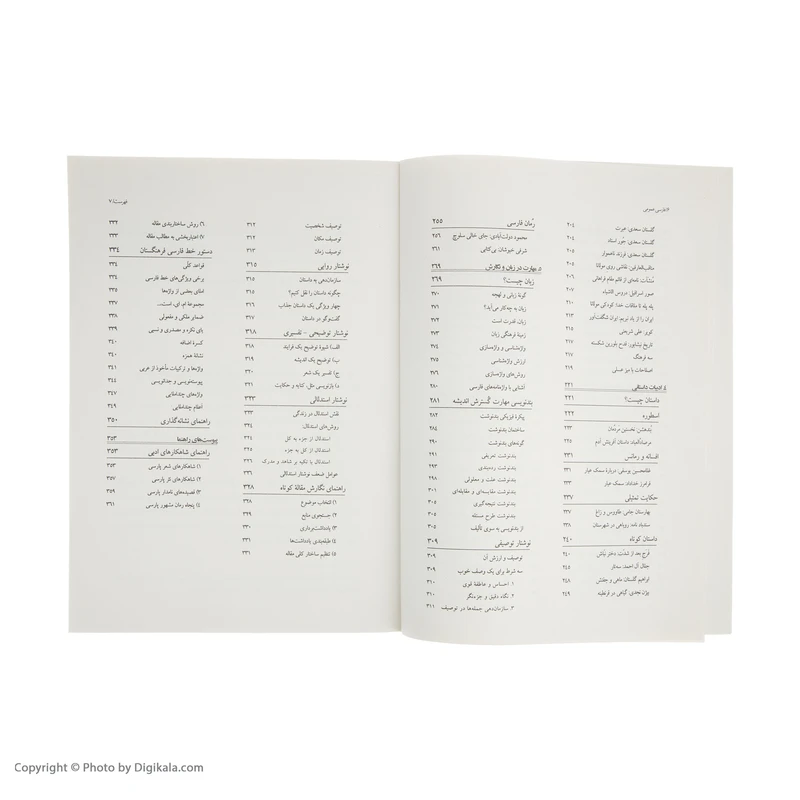 ۶/فارسی عمومی
گلستان سعدی: عبرت ۲۰۴
گلستان سعدی: جور استاد ۲۰۴
گلستان سعدی: فرزند ناهموار ۲۰۵
مناقب‌العارفین: نقاشی روی مولانا ۲۰۶
منشآت: نامه‌ای از قائم مقام فراهانی ۲۰۶
صور اسرافیل: دروس الاشیاء ۲۰۷
پله پله تا ملاقات خدا: کودکی مولانا
ایران را از یاد نبریم: ایران شگفت‌آور
کویر: علی شریعتی
تاریخ نیشابور: قدح بلورین شکسته ۲۱۷
سه فرهنگ
اصلاحات یا میز عسلی ۲۱۹
۴. ادبیات داستانی ۲۲۱
داستان چیست؟ ۲۲۱
اسطوره ۲۲۲
بُندهشن: نخستین مردمان
مرصادالعباد: داستان آفرینش آدم
افسانه و رمانس ۲۳۱
غلامحسین یوسفی: دربارهٔ سمک عیار ۲۳۱
فرامرز خداداد: سمک عیار
حکایت تمثیلی ۲۳۷
بهارستان جامی: طاووس و زاغ
سندباد نامه: روباهی در شهرستان ۲۳۸
داستان کوتاه ۲۴۰
فرج بعد از شدت: دختر نبّاش ۲۴۰
جلال آل احمد: سه‌تار ۲۴۵
ابراهیم گلستان: ماهی و جفتش ۲۴۸
بیژن نجدی: گیاهی در قرنطینه ۲۴۹
رُمان فارسی ۲۵۵
محمود دولت‌آبادی: جای خالی سلوچ ۲۵۶
شرقی خبوشان: بی‌کتابی ۲۶۱
۵. مهارت در زبان و نگارش ۲۶۹
زبان چیست؟ ۲۶۹
گونهٔ زبانی و لهجه ۲۷۰
زبان به چه‌کار می‌آید؟ ۲۷۱
زبان، قدرت است ۲۷۲
زمینهٔ فرهنگی زبان ۲۷۳
واژه‌شناسی و واژه‌سازی ۲۷۴
ارزش واژه‌شناسی ۲۷۵
روش‌های واژه‌سازی ۲۷۶
آشنایی با واژه‌نامه‌های فارسی ۲۸۰
بندنویسی مهارت گسترش اندیشه ۲۸۱
پیکرهٔ فیزیکی بندنوشت ۲۸۲
ساختمان بندنوشت
گونه‌های بندنوشت ۲۹۰
بندنوشت تعریفی ۲۹۱
بندنوشت رده‌بندی ۲۹۳
بندنوشت علت و معلولی ۲۹۸
بندنوشت مقایسه‌ای و مقابله‌ای ۳۰۱
بندنوشت نتیجه‌گیری ۳۰۵
بندنوشت طرح مسئله ۳۰۵
از بندنویسی به سوی تألیف ۳۰۵
نوشتار توصیفی ۳۰۹
توصیف و ارزش آن ۳۰۹
سه شرط برای یک وصف خوب ۳۰۹
۱. احساس و عاطفهٔ قوی ۳۱۰
۲. نگاه دقیق و جزءنگر ۳۱۰
۳. سازمان‌دهی جمله‌ها در توصیف ۳۱۱
فهرست/۷
توصیف شخصیت ۳۱۲
توصیف مکان ۳۱۲
توصیف زمان ۳۱۳
نوشتار روایی ۳۱۵
سازمان‌دهی به داستان ۳۱۵
چگونه داستان را نقل کنیم؟ ۳۱۵
چهار ویژگی یک داستان جذاب ۳۱۶
گفت‌وگو در داستان ۳۱۷
نوشتار توضیحی - تفسیری ۳۱۸
الف) شیوهٔ توضیح یک فرایند ۳۱۸
ب) توضیح یک اندیشه ۳۱۹
ج) تفسیر یک شعر ۳۲۰
د) بازنویسی مثل، کنایه و حکایت ۳۲۱
نوشتار استدلالی ۳۲۳
نقش استدلال در زندگی ۳۲۳
روش‌های استدلال:
استدلال از جزء به کل ۳۲۴
استدلال از کل به جزء ۳۲۴
استدلال با تکیه بر شاهد و مدرک ۳۲۶
عوامل ضعف نوشتار استدلالی
راهنمای نگارش مقالهٔ کوتاه ۳۲۸
۱) انتخاب موضوع ۳۲۸
۲) جستجوی منابع ۳۲۹
۳) یادداشت‌برداری ۳۳۰
۴) طبقه‌بندی یادداشت‌ها ۳۳۱
۵) تنظیم ساختار کلی مقاله ۳۳۱
۶) روش ساختاربندی مقاله ۳۳۲
۷) اعتباربخشی به مطالب مقاله ۳۳۳
دستور خط فارسی فرهنگستان ۳۳۴
قواعد کلّی ۳۳۴
برخی ویژگی‌های خط فارسی ۳۳۴
املای بعضی از واژه‌ها ۳۳۵
مجموعهٔ ام، ای، است... ۳۳۷
ضمایر ملکی و مفعولی ۳۳۸
یای نکره و مصدری و نسبی ۳۳۹
کسرهٔ اضافه ۳۴۰
نشانهٔ همزه ۳۴۰
واژه‌ها و ترکیبات مأخوذ از عربی ۳۴۱
پیوسته‌نویسی و جدانویسی
واژه‌های چنداملایی ۳۴۷
اعلام چنداملایی ۳۴۹
راهنمای نشانه‌گذاری ۳۵۰
پیوست‌های راهنما ۳۵۳
راهنمای شاهکارهای ادبی ۳۵۳
۱) شاهکارهای شعر پارسی ۳۵۳
۲) شاهکارهای نثر پارسی ۳۵۷
۳) قصیده‌های نامدار پارسی ۳۵۹
۴) پنجاه رمان مشهور پارسی ۳۶۱
Copyright © Photo by Digikala.com